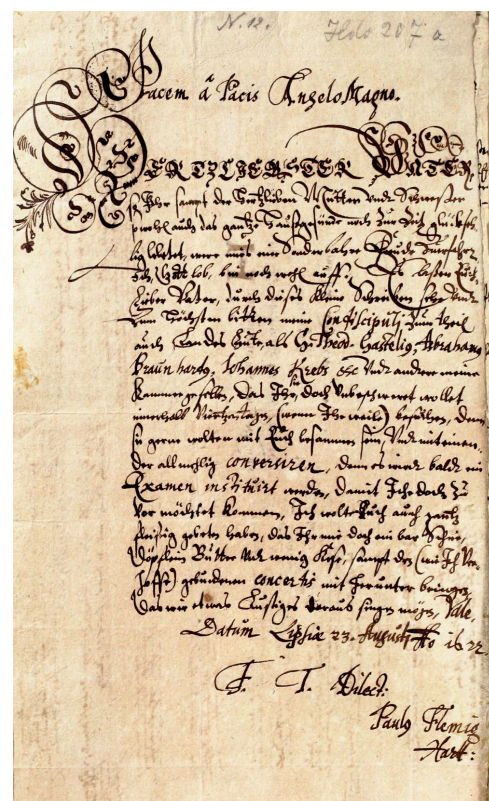 N. 12.
Pacem â Pacis Angelo Magno.
HERTZLIEBSTER VATER,
Ihr sampt der Hertzlieben Mutter undt Schwester
auch das gantze Haußgesinde noch zur Zeit glückse-
lig lebetet, were mir eine Sonderbahre Freude zuerfahren
Ich, Gott lob, bin noch wohl auff. Es lassen Euch
Lieber Vater, durch dieses kleine Schreiben sehr undt
Zum Höchsten bitten meine Condiscipuli zum theil
auch Theod. Abraham
Braunhardg, Iohannes Krebs &c undt andere meine
Kammergesellen, das Ihr doch unbeschweret wollet
innerhalb (wenn Ihr weil) besuchen, denn
sie gerne wolten mit Euch beysammen sein, Undt mit einan-
der conversiren, denn es wird baldt ein
Examen instituirt werden, damit Ihr doch zu
vor möchtet kommen, Ich wolte Euch auch gantz
fleisig gebeten haben, das Ihr mir doch ein bar Schue,
Töpflein Butter undt wenig Kese, sampt den (wie Ich ver-
hoffe) gebundenen concertis mit herunter bringet,
Das wir etwas Lustiges daraus singen mögen, Vale,
Datum Lipsiæ 23. Augusti Ao 1622
E. T. Dilect:
Paulg Flemig
Hartt: